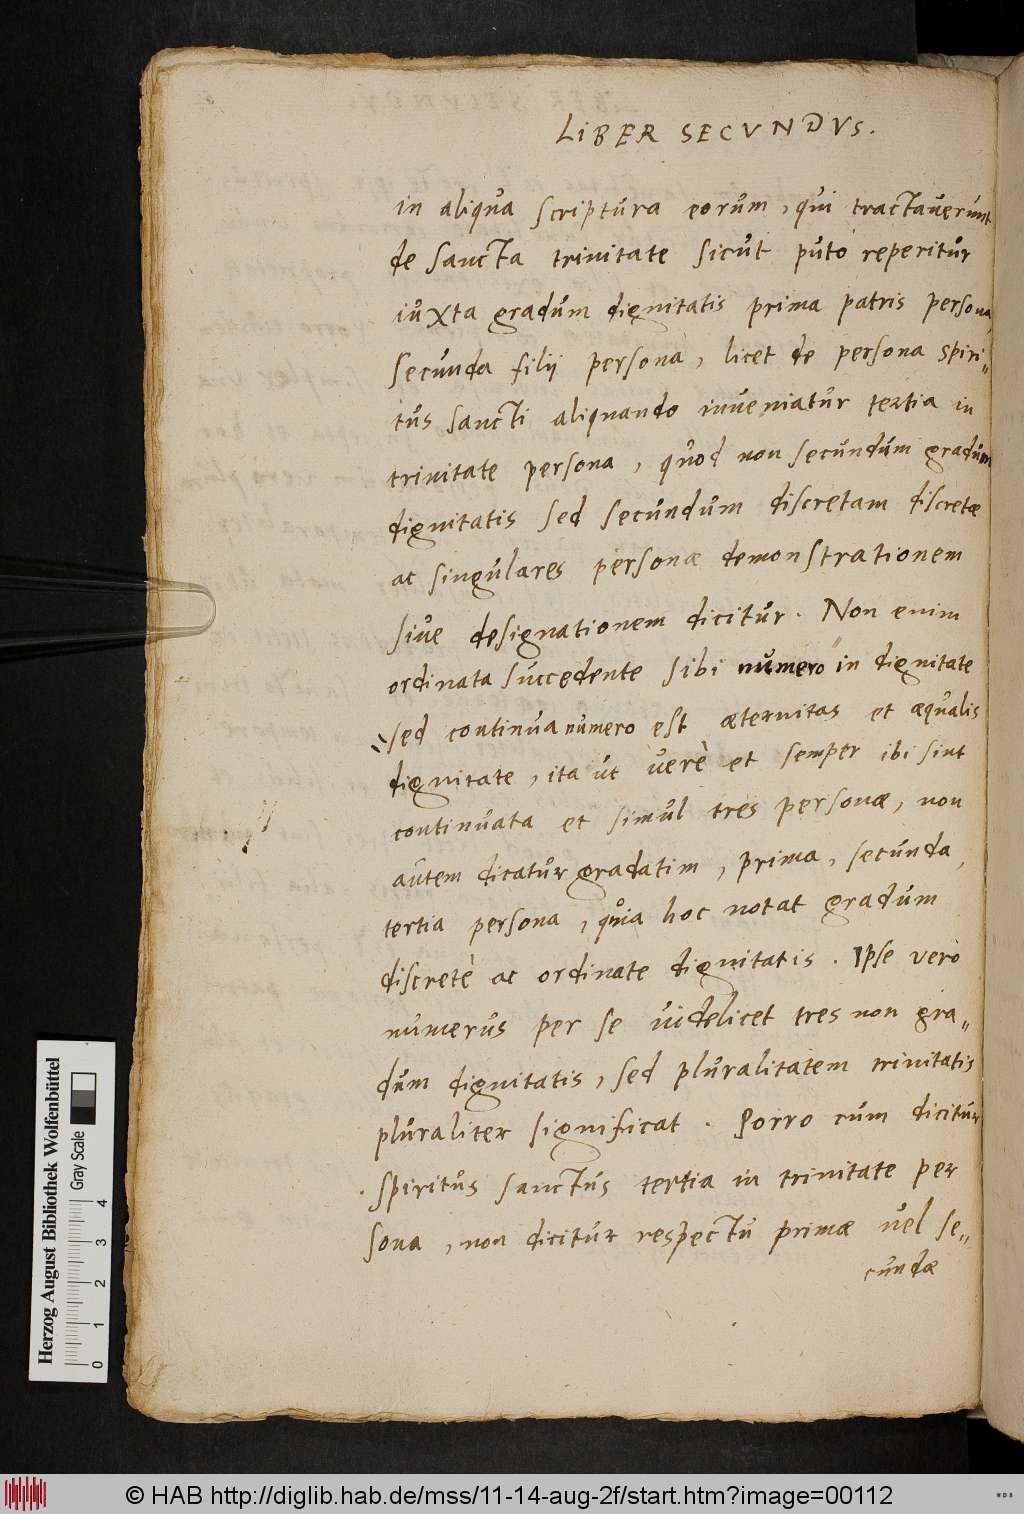 LIBER SECVNDVS.
in aliqua scriptura eorum, qui tractauerunt
de sancta trinitate sicut puto reperitur
iuxta gradum dignitatis prima patris persona,
secunda filij persona, licet de persona spiri„
tus sancti aliquando inueniatur tertia in
trinitate persona, quod non secundum gradum
dignitatis sed secundum discretam discretæ
ac singulares personæ demonstrationem
siue designationem dicitur. Non enim
ordinata succedente sibi numero" in dignitate
"sed continua numero est æternitas et æqualis
dignitate, ita ut verè et semper ibi sint
continuata et simul tres personæ, non
autem dicatur gradatim, prima, secunda,
tertia persona, quia hoc notat gradum
discretè ac ordinate dignitatis. Ipse vero
numerus per se uidelicet tres non gra„
dum dignitatis, sed pluralitatem trinitatis
pluraliter significat. Porro cum dicitur
. spiritus sanctus tertia in trinitate per
sona, non dicitur respectu primæ uel se„
cundæ
Herzog August Bibliothek Wolfenbüttel
Gray Scale
0 1 2 3 4
© HAB http://diglib.hab.de/mss/11-14-aug-2f/start.htm?image=00112